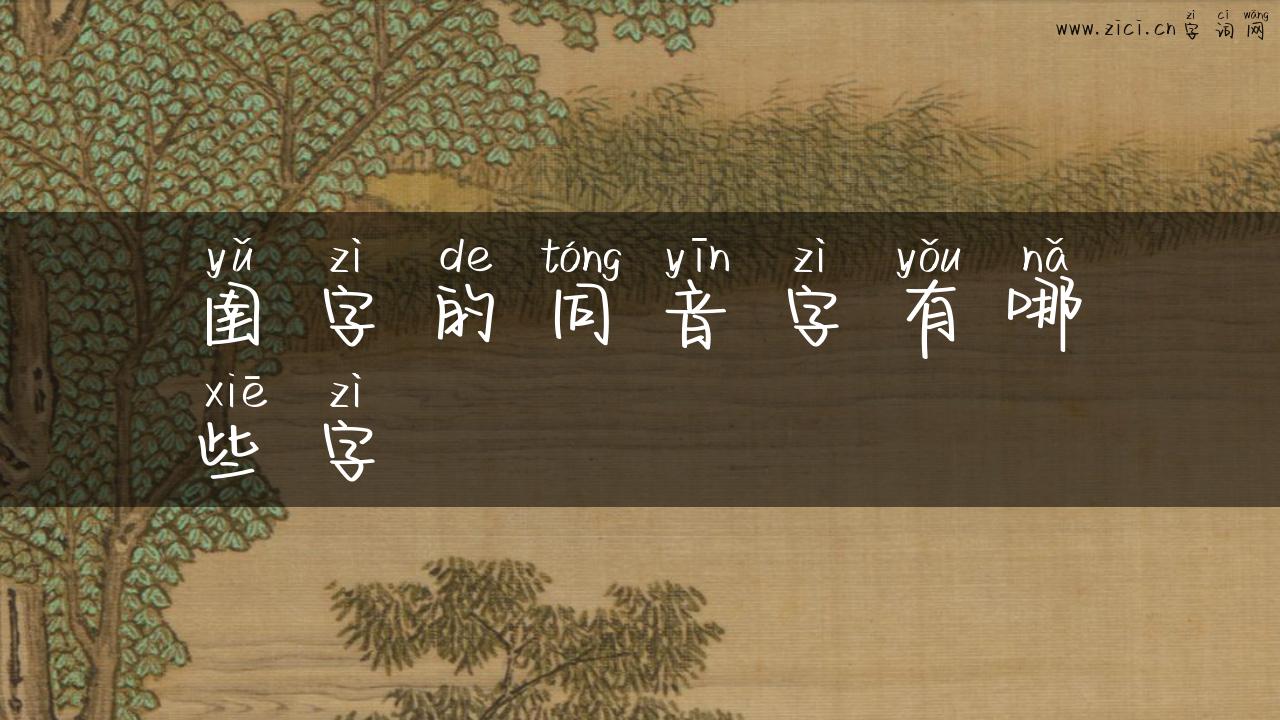 www.zici.cn
zì cí wǎng
字词网
yǔ zì de tóng yīn zì yǒu nǎ
圉字的同音字有哪
xiē zì
些字